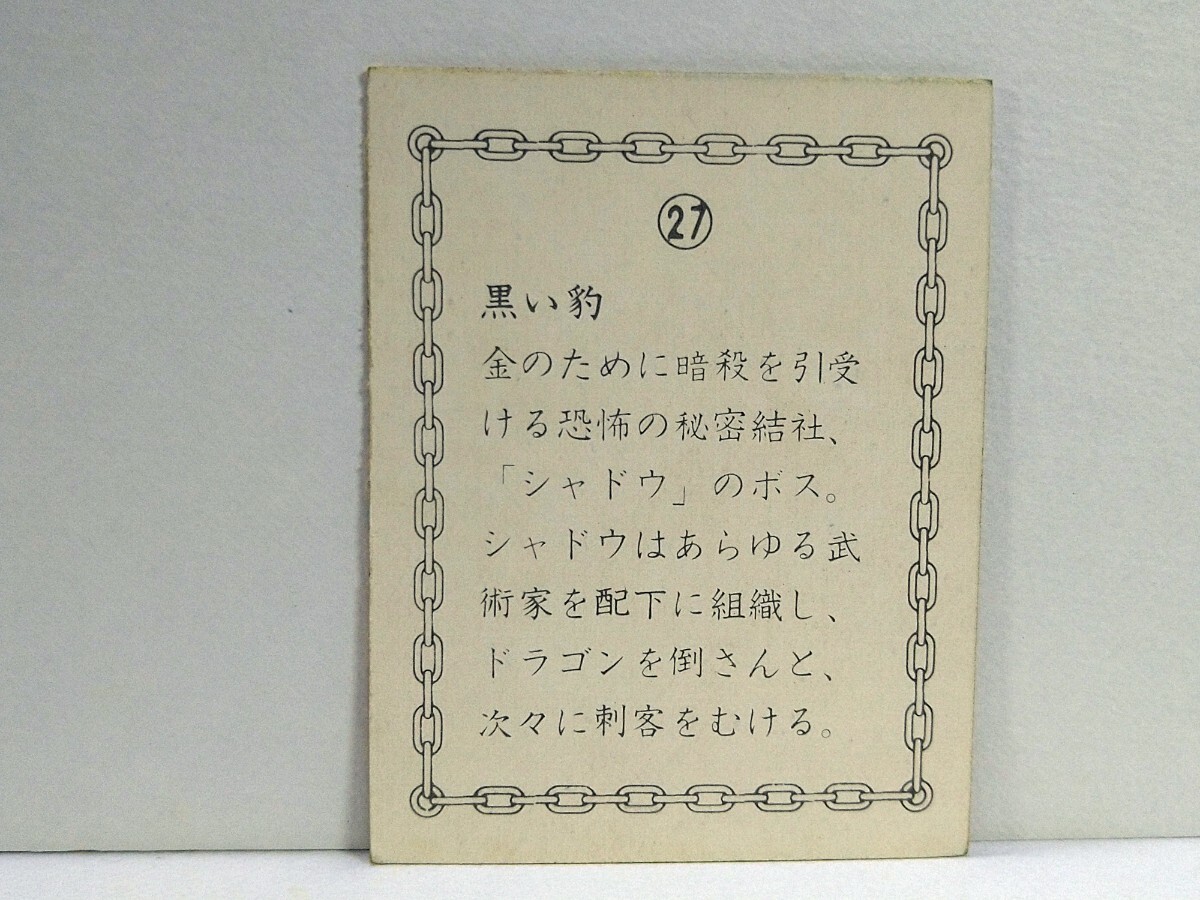 27
黒い豹
金のために暗殺を引受
ける恐怖の秘密結社、
「シャドウ」のボス。
シャドウはあらゆる武
術家を配下に組織し、
ドラゴンを倒さんと、
次々に刺客をむける。